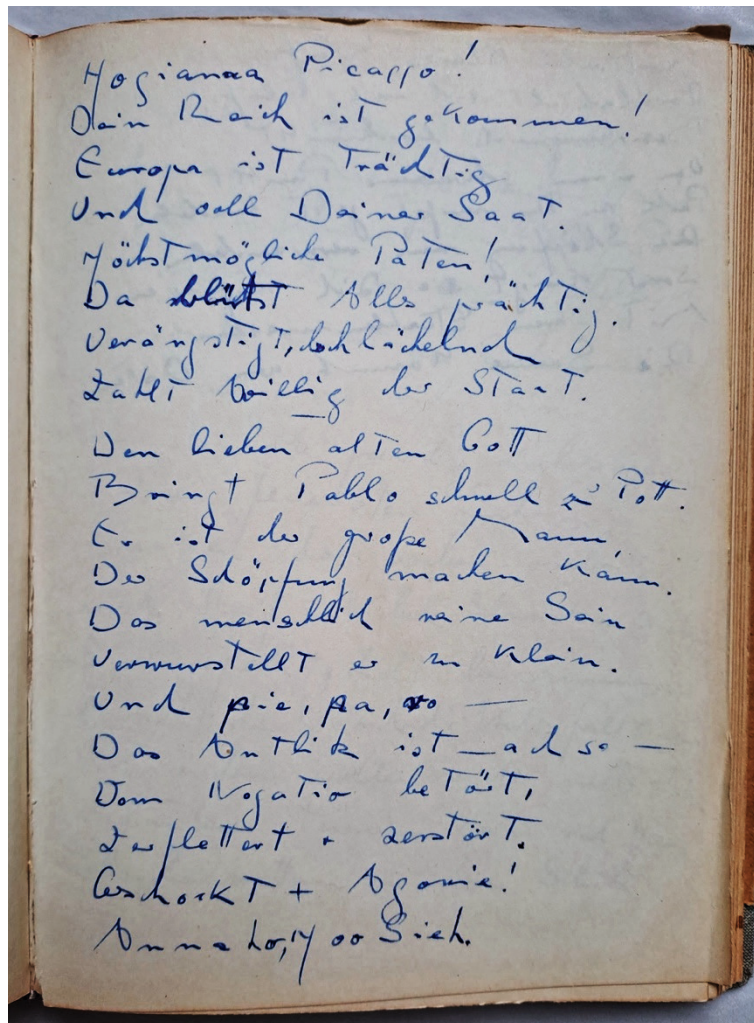 Hosianna Picasso!
Dein Reich ist gekommen!
Europa ist trächtig
Und voll Deiner Saat.
Höchstmögliche Paten!
Da blüht Alles prächtig.
Verängstigt, doch lächelnd
Zahlt willig der Staat.
Den lieben alten Gott
Bringt Pablo schnell z' Pott.
Er ist der große Mann,
Der Schöpfung machen kann.
Das menschlich reine Sein
Verwurstellt er zu klein.
Und pie, pa, po —
Das Antlitz ist — ach so —
Vom Negativ betört,
Zerflettert + zerstört.
Geschockt + Agonie!